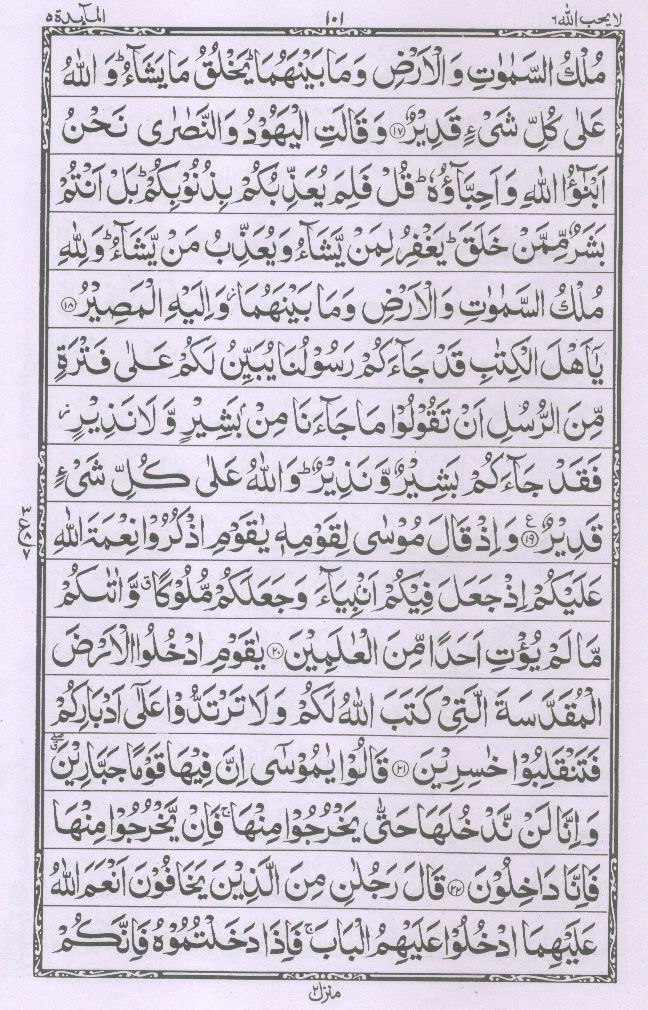 لا یحب الله ٦ ١٠١ المآىِٕدة ٥
مُلْكُ السَّمٰوٰتِ وَالْاَرْضِ وَمَا بَیْنَهُمَا ؕ یَخْلُقُ مَا یَشَآءُ ؕ وَاللّٰهُ
عَلٰی كُلِّ شَیْءٍ قَدِیْرٌ ﴿١٧﴾ وَقَالَتِ الْیَهُوْدُ وَالنَّصٰرٰی نَحْنُ
اَبْنٰٓؤُا اللّٰهِ وَاَحِبَّآؤُهٗ ؕ قُلْ فَلِمَ یُعَذِّبُكُمْ بِذُنُوْبِكُمْ ؕ بَلْ اَنْتُمْ
بَشَرٌ مِّمَّنْ خَلَقَ ؕ یَغْفِرُ لِمَنْ یَّشَآءُ وَیُعَذِّبُ مَنْ یَّشَآءُ ؕ وَلِلّٰهِ
مُلْكُ السَّمٰوٰتِ وَالْاَرْضِ وَمَا بَیْنَهُمَا ؗ وَاِلَیْهِ الْمَصِیْرُ ﴿١٨﴾
یٰۤاَهْلَ الْكِتٰبِ قَدْ جَآءَكُمْ رَسُوْلُنَا یُبَیِّنُ لَكُمْ عَلٰی فَتْرَةٍ
مِّنَ الرُّسُلِ اَنْ تَقُوْلُوْا مَا جَآءَنَا مِنْۢ بَشِیْرٍ وَّلَا نَذِیْرٍ ؗ
فَقَدْ جَآءَكُمْ بَشِیْرٌ وَّنَذِیْرٌ ؕ وَاللّٰهُ عَلٰی كُلِّ شَیْءٍ
قَدِیْرٌ ﴿١٩﴾ ع وَاِذْ قَالَ مُوْسٰی لِقَوْمِهٖ یٰقَوْمِ اذْكُرُوْا نِعْمَةَ اللّٰهِ
عَلَیْكُمْ اِذْ جَعَلَ فِیْكُمْ اَنْۢبِیَآءَ وَجَعَلَكُمْ مُّلُوْكًا ۗ وَّاٰتٰىكُمْ
مَّا لَمْ یُؤْتِ اَحَدًا مِّنَ الْعٰلَمِیْنَ ﴿٢٠﴾ یٰقَوْمِ ادْخُلُوا الْاَرْضَ
الْمُقَدَّسَةَ الَّتِیْ كَتَبَ اللّٰهُ لَكُمْ وَلَا تَرْتَدُّوْا عَلٰۤی اَدْبَارِكُمْ
فَتَنْقَلِبُوْا خٰسِرِیْنَ ﴿٢١﴾ قَالُوْا یٰمُوْسٰۤی اِنَّ فِیْهَا قَوْمًا جَبَّارِیْنَ ۖۗ
وَاِنَّا لَنْ نَّدْخُلَهَا حَتّٰی یَخْرُجُوْا مِنْهَا ۚ فَاِنْ یَّخْرُجُوْا مِنْهَا
فَاِنَّا دَاخِلُوْنَ ﴿٢٢﴾ قَالَ رَجُلٰنِ مِنَ الَّذِیْنَ یَخَافُوْنَ اَنْعَمَ اللّٰهُ
عَلَیْهِمَا ادْخُلُوْا عَلَیْهِمُ الْبَابَ ۚ فَاِذَا دَخَلْتُمُوْهُ فَاِنَّكُمْ
منزل ٢